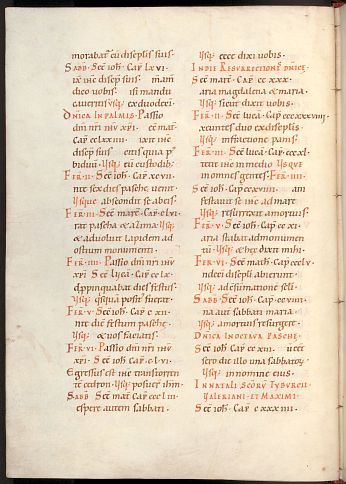 morabat cū discipłis suis.
SABB. Scd̄ ioħ. Cap̄ LXVI.
dico vobis. isi mandu
DN̄ICA IN PALMIS. Passio
dn̄i nr̄i ihv xp̄i. sc̄ mat̄.
FER̄. II. Scd̄ ioħ. Cap̄ XCVII.
nte sex dies pasche. uenit
usque abscondit se ab eis.
FER̄. III. Scd̄ marc̄. Cap̄ CLVI.
rat pascha & azima. usq:
& aduoluit lapidem ad
ostium monumenti.
FER̄. IIII. Passio dn̄i nr̄i ihv
xp̄i. Scd̄ lucā. Cap̄ CCLX.
ppinquabat dies festus.
usq: positus fuerat.
FER̄. V. Scd̄ ioħ. Cap̄ CXII.
nte diē festum pasche.
usq: & uos faciatis.
FER̄. VI. Passio dn̄i nr̄i ihv
xp̄i. Scd̄ ioħ. Cap̄ CLVI.
Egressus est ihc̄ trans torren
tē cedron. usq: posuer̄ ihm̄.
SABB. Scd̄ mat̄. Cap̄ CCCLII.
espere autem sabbati.
usq: ecce dixi uobis.
IN DIE RESURRECTIONIS DN̄ICE.
Scd̄ marc̄. Cap̄ CCXXX.
aria magdalena & maria.
usq: sicut dixit uobis.
FER̄. II. Scd̄ lucā. Cap̄ CCCXXXVIII.
xeuntes duo ex discipłis
usq: in fractione panis.
FER̄. III. Scd̄ lucā. Cap̄ CCCXL.
tetit ihc̄ in medio. USQUE
in omnes gentes. FER̄. IIII.
Scd̄ ioħ. Cap̄ CCXVIIII. am
festauit se ihc̄ ad mare
usq: resurrexit a mortuis.
FER̄. V. Scd̄ ioħ. Cap̄ CCXI.
aria stabat ad monumen
tū. usq: & hec dixit mihi.
FER̄. VI. Scd̄ matħ. Cap̄ CCCLV.
ndeci discipli abierunt.
usq: ad consumationē scłi.
SABB. Scd̄ ioħ. Cap̄ CCVIIII.
na aut sabbati maria.
usq: a mortuis resurgere.
DN̄ICA IN OCTAVA PASCHE.
Scd̄ ioħ. Cap̄ CCXIII. ū eēt
sero die illo una sabbatorū
usq: in nomine eius.
IN NATALI SC̄ORV̄ TYBURCII.
VALERIANI. ET MAXIMI.
Scd̄ ioħ. Cap̄ CXXXIIII.